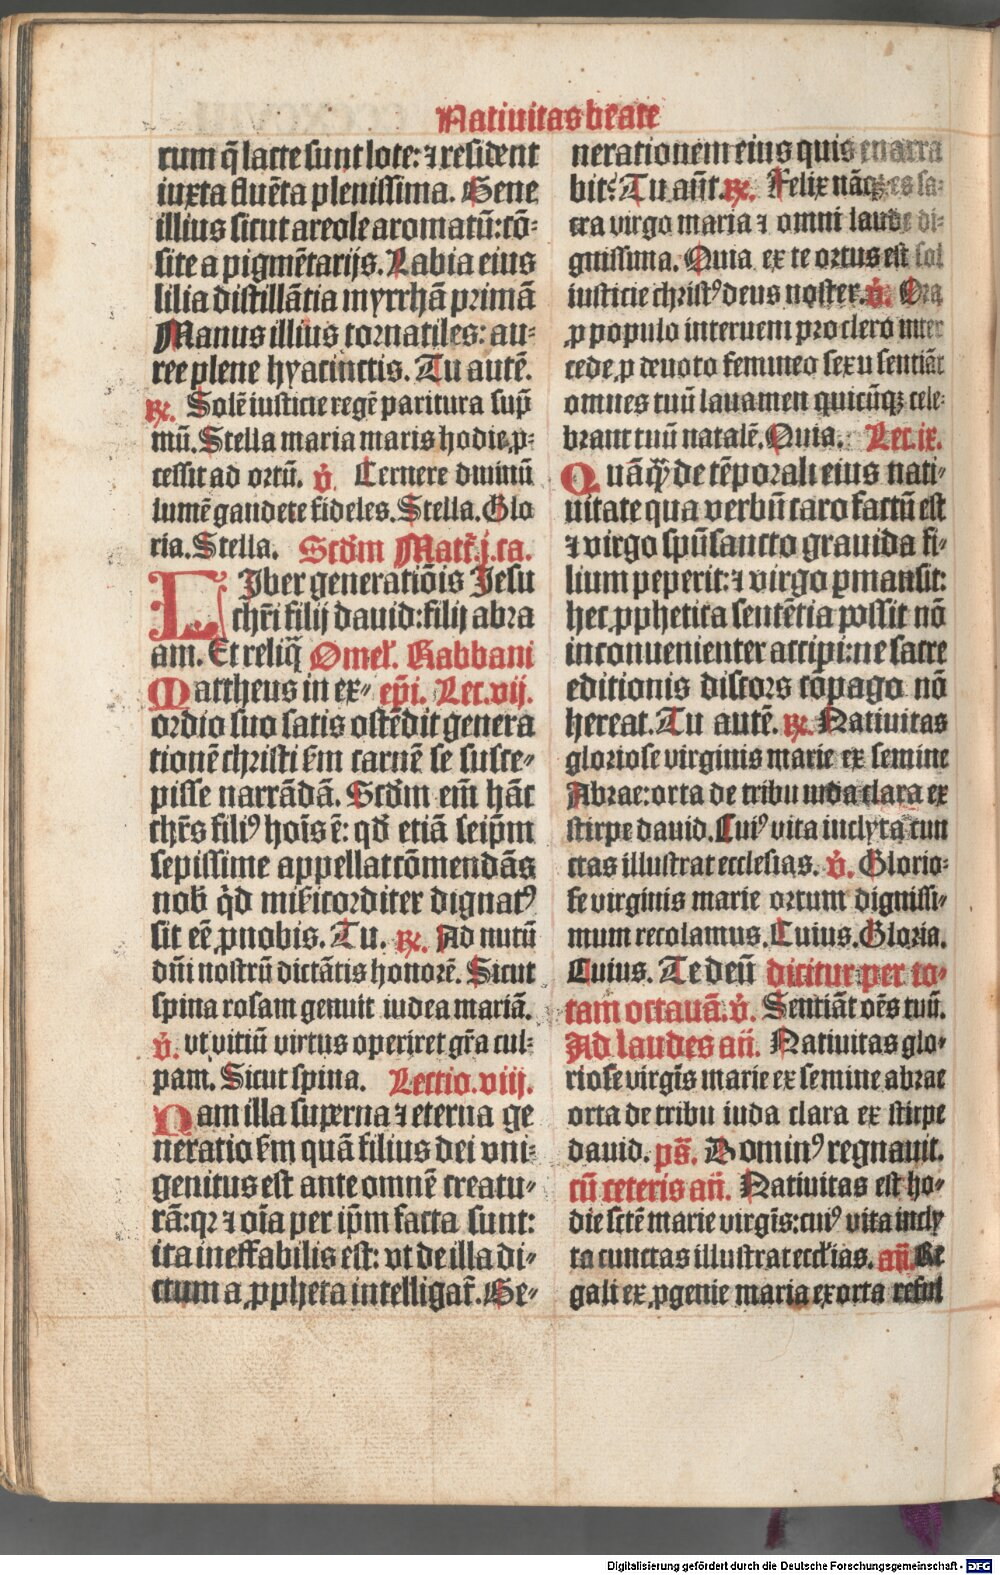 Natiuitas beate
rum q̃ lacte sunt lote: ⁊ resident
iuxta fluẽta plenissima. Gene
illius sicut areole aromatũ: cõ-
site a pigmẽtarijs. Labia eius
lilia distillãtia myrrhã primã
Manus illius tornatiles: au-
ree plene hyacinctis. Tu autẽ.
℟. Solẽ iusticie regẽ paritura sup̃
mũ. Stella maria maris hodie ꝓ-
cessit ad ortũ. ℣. Cernere diuinũ
lumẽ gaudete fideles. Stella. Glo
ria. Stella. Scd̃m Matt̃. j. ca.
LIber generatiõis Jesu
chr̃i filij dauid: filij abra
am. Et reliq̃ Omeł. Rabbani
Mattheus in ex- ep̃i. Lec. vij.
ordio suo satis ostẽdit genera
tionẽ christi ẜm carnẽ se susce-
pisse narrãdã. Scd̃m em̃ hãc
chr̃s filiꝰ hoĩs ẽ: qd̃ etiã seip̃m
sepissime appellat cõmendãs
nob̃ q̃d mĩsericorditer dignatꝰ
sit eẽ ꝓ nobis. Tu. ℟. Ad nutũ
dñi nostrũ dictãtis honorẽ. Sicut
spina rosam genuit iudea mariã.
℣. vt vitiũ virtus operiret gr̃a cul-
pam. Sicut spina. Lectio. viij.
Nam illa superna ⁊ eterna ge
neratio ẜm quã filius dei vni-
genitus est ante omnẽ creatu-
rã: qꝛ ⁊ oĩa per ip̃m facta sunt:
ita ineffabilis est: vt de illa di-
ctum a ꝓpheta intelligat̃. Ge-
nerationem eius quis enarra
bit? Tu aũt. ℟. Felix nãqꝫ es sa-
cra virgo maria ⁊ omni laude di-
gnissima. Quia ex te ortus est sol
iusticie christꝰ deus noster. ℣. Ora
ꝓ populo interueni pro clero inter
cede ꝓ deuoto femineo sexu sentiãt
omnes tuũ iauamen quicũqꝫ cele-
brant tuũ natalẽ. Quia. Lec. ix.
Quãq̃ꝫ de tẽporali eius nati-
uitate qua verbũ caro factũ est
⁊ virgo spũsancto grauida fi-
lium peperit: ⁊ virgo ꝑmansit:
hec ꝓphetica sentẽtia possit nõ
inconuenienter accipi: ne sacre
editionis discors cõpago nõ
hereat. Tu autẽ. ℟. Natiuitas
gloriose virginis marie ex semine
Abrae: orta de tribu iuda clara ex
stirpe dauid. Cuiꝰ vita inclyta cun
ctas illustrat ecclesias. ℣. Glorio-
se virginis marie ortum dignissi-
mum recolamus. Cuius. Gloria.
Cuius. Te deũ dicitur per to-
tam octauã. ℣. Sentiãt oẽs tuũ.
Ad laudes añ. Natiuitas glo-
riose virgĩs marie ex semine abrae
orta de tribu iuda clara ex stirpe
dauid. ps̃. Dominꝰ regnauit.
cũ ceteris añ. Natiuitas est ho-
die sctẽ marie virgĩs: cuiꝰ vita incly
ta cunctas illustrat eccłias. añ. Re
gali ex ꝓgenie maria exorta reful
Digitalisierung gefördert durch die Deutsche Forschungsgemeinschaft - DFG